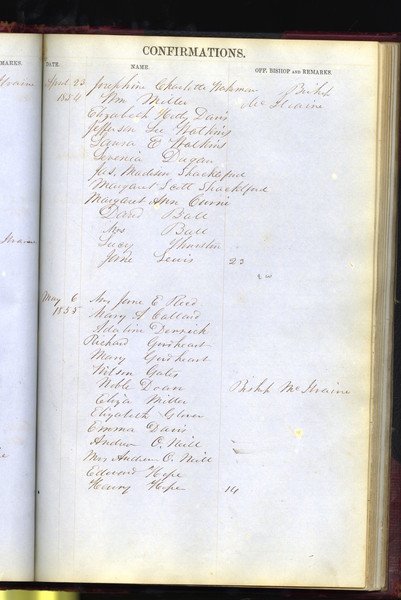 CONFIRMATIONS.
MARKS. DATE. NAME. OFF. BISHOP AND REMARKS
April 23 Josephine Charlotte Bishop
1854 Wm Miller McIlvaine
Elizabeth Hetty Davis
Jefferson Lee Watkins
Laura E Watkins
Levenia Dugan
Jas. Madison Shackleford
Margaret Scott Shackleford
Margaret Ann Currie
David Ball
Mrs Ball
Lucy Thurston
Jane Lewis 23
May 6 Mrs Jane E Reed
1855 Mary A Callard
Adaline Derrick
Richard Gearheart
Mary Gearheart
Wilson Gates
Noble Doan Bishop McIlvaine
Eliza Miller
Elizabeth Glover
Emma Davis
Andrew O. Neill
Mrs Andrew O. Neill
Edward Hope
Henry Hope 14